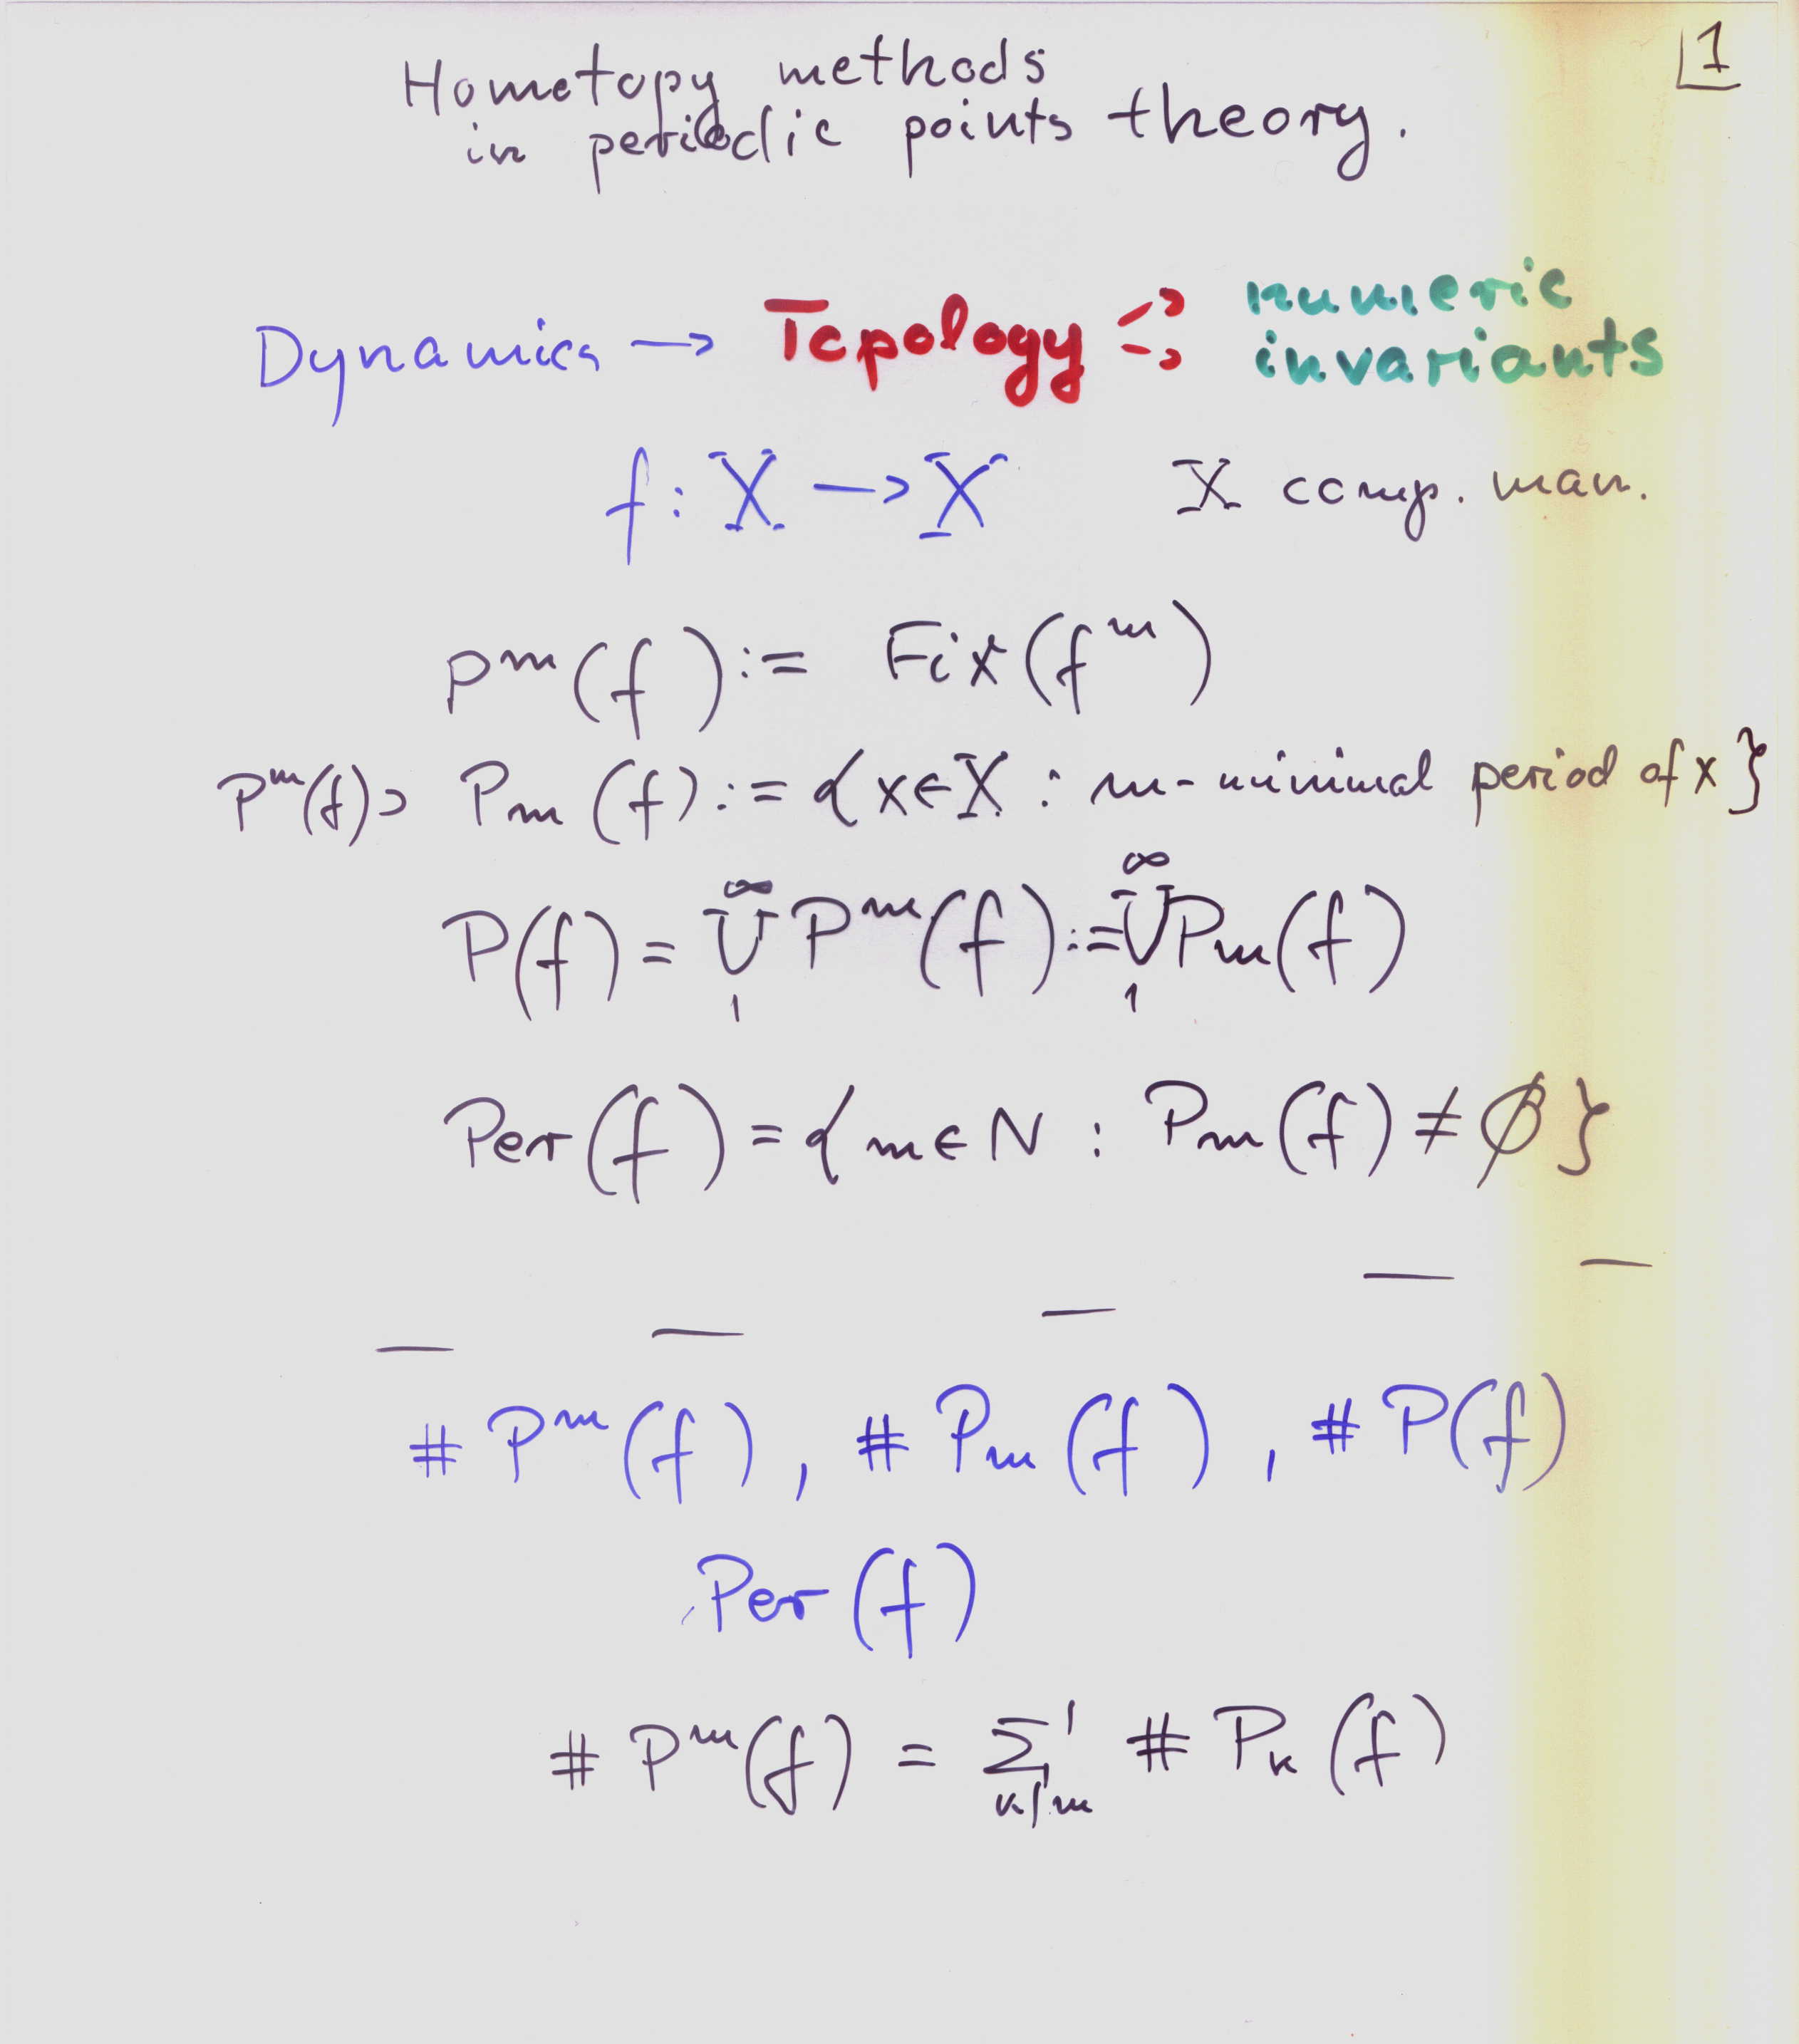 1
Homotopy methods
in periodic points theory.
Dynamics → Topology ⇉ numeric
invariants
f : X → X   X comp. man.
P^m(f) := Fix(f^m)
P^m(f) ⊃ P_m(f) := {x ∈ X : m-minimal period of x}
P(f) = ⋃_1^∞ P^m(f) := ⋃_1^∞ P_m(f)
Per(f) = {m ∈ N : P_m(f) ≠ ∅}
— — — — —
# P^m(f), # P_m(f), # P(f)
Per(f)
# P^m(f) = Σ_{k|m} # P_k(f)